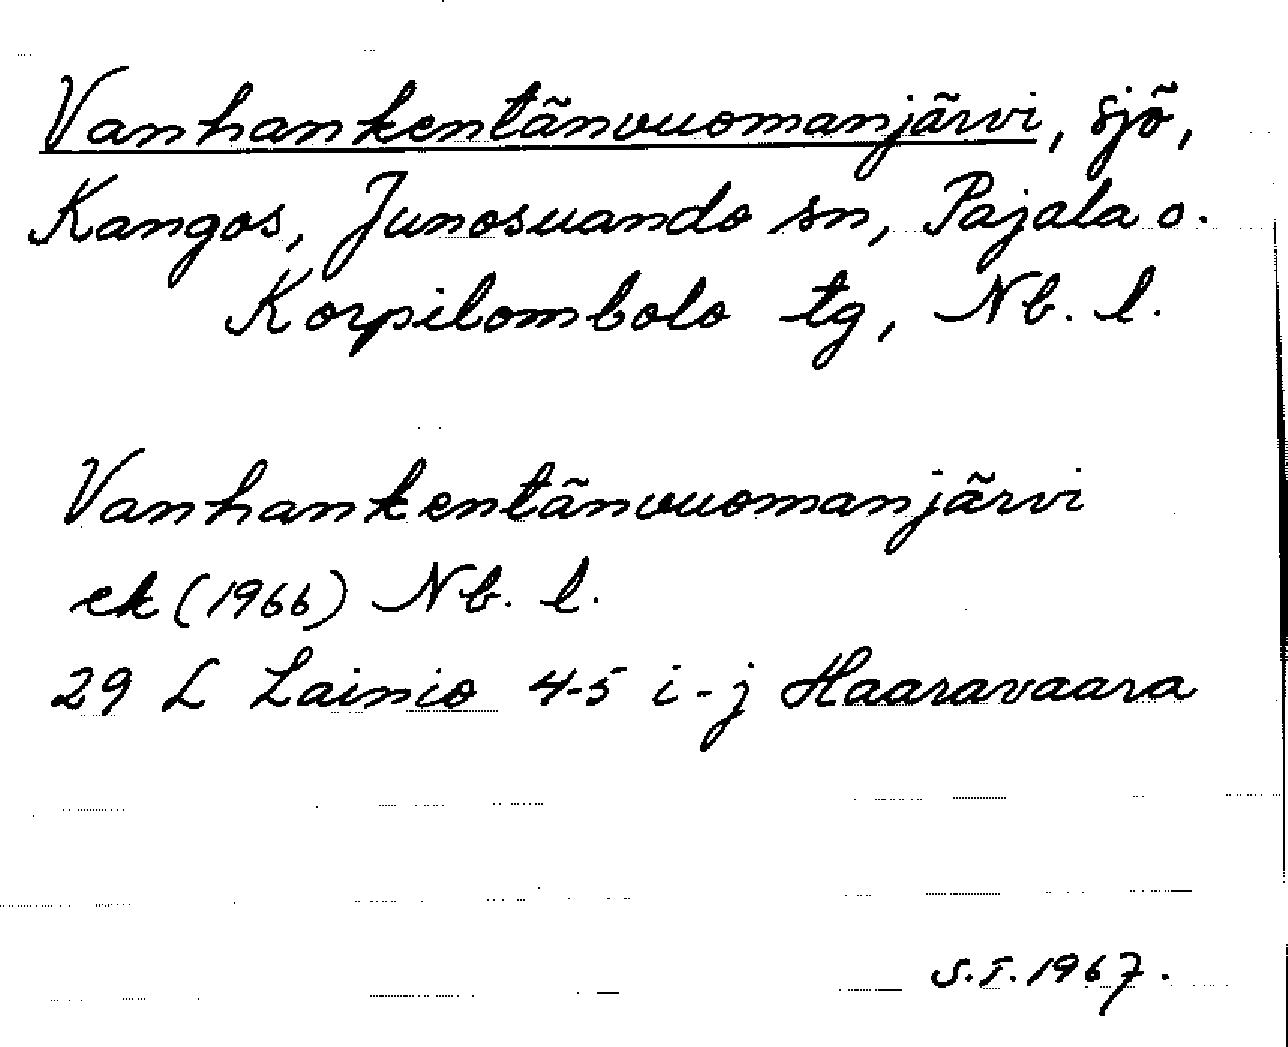 Vanhankentänvuomanjärvi, sjö,
Kangos, Junosuando sn, Pajala o.
Korpilombolo tg, Nb. l.
Vanhankentänvuomanjärvi
ek (1966) Nb. l.
29 L Lainio 4-5 i-j Haaravaara
S.T. 1967.